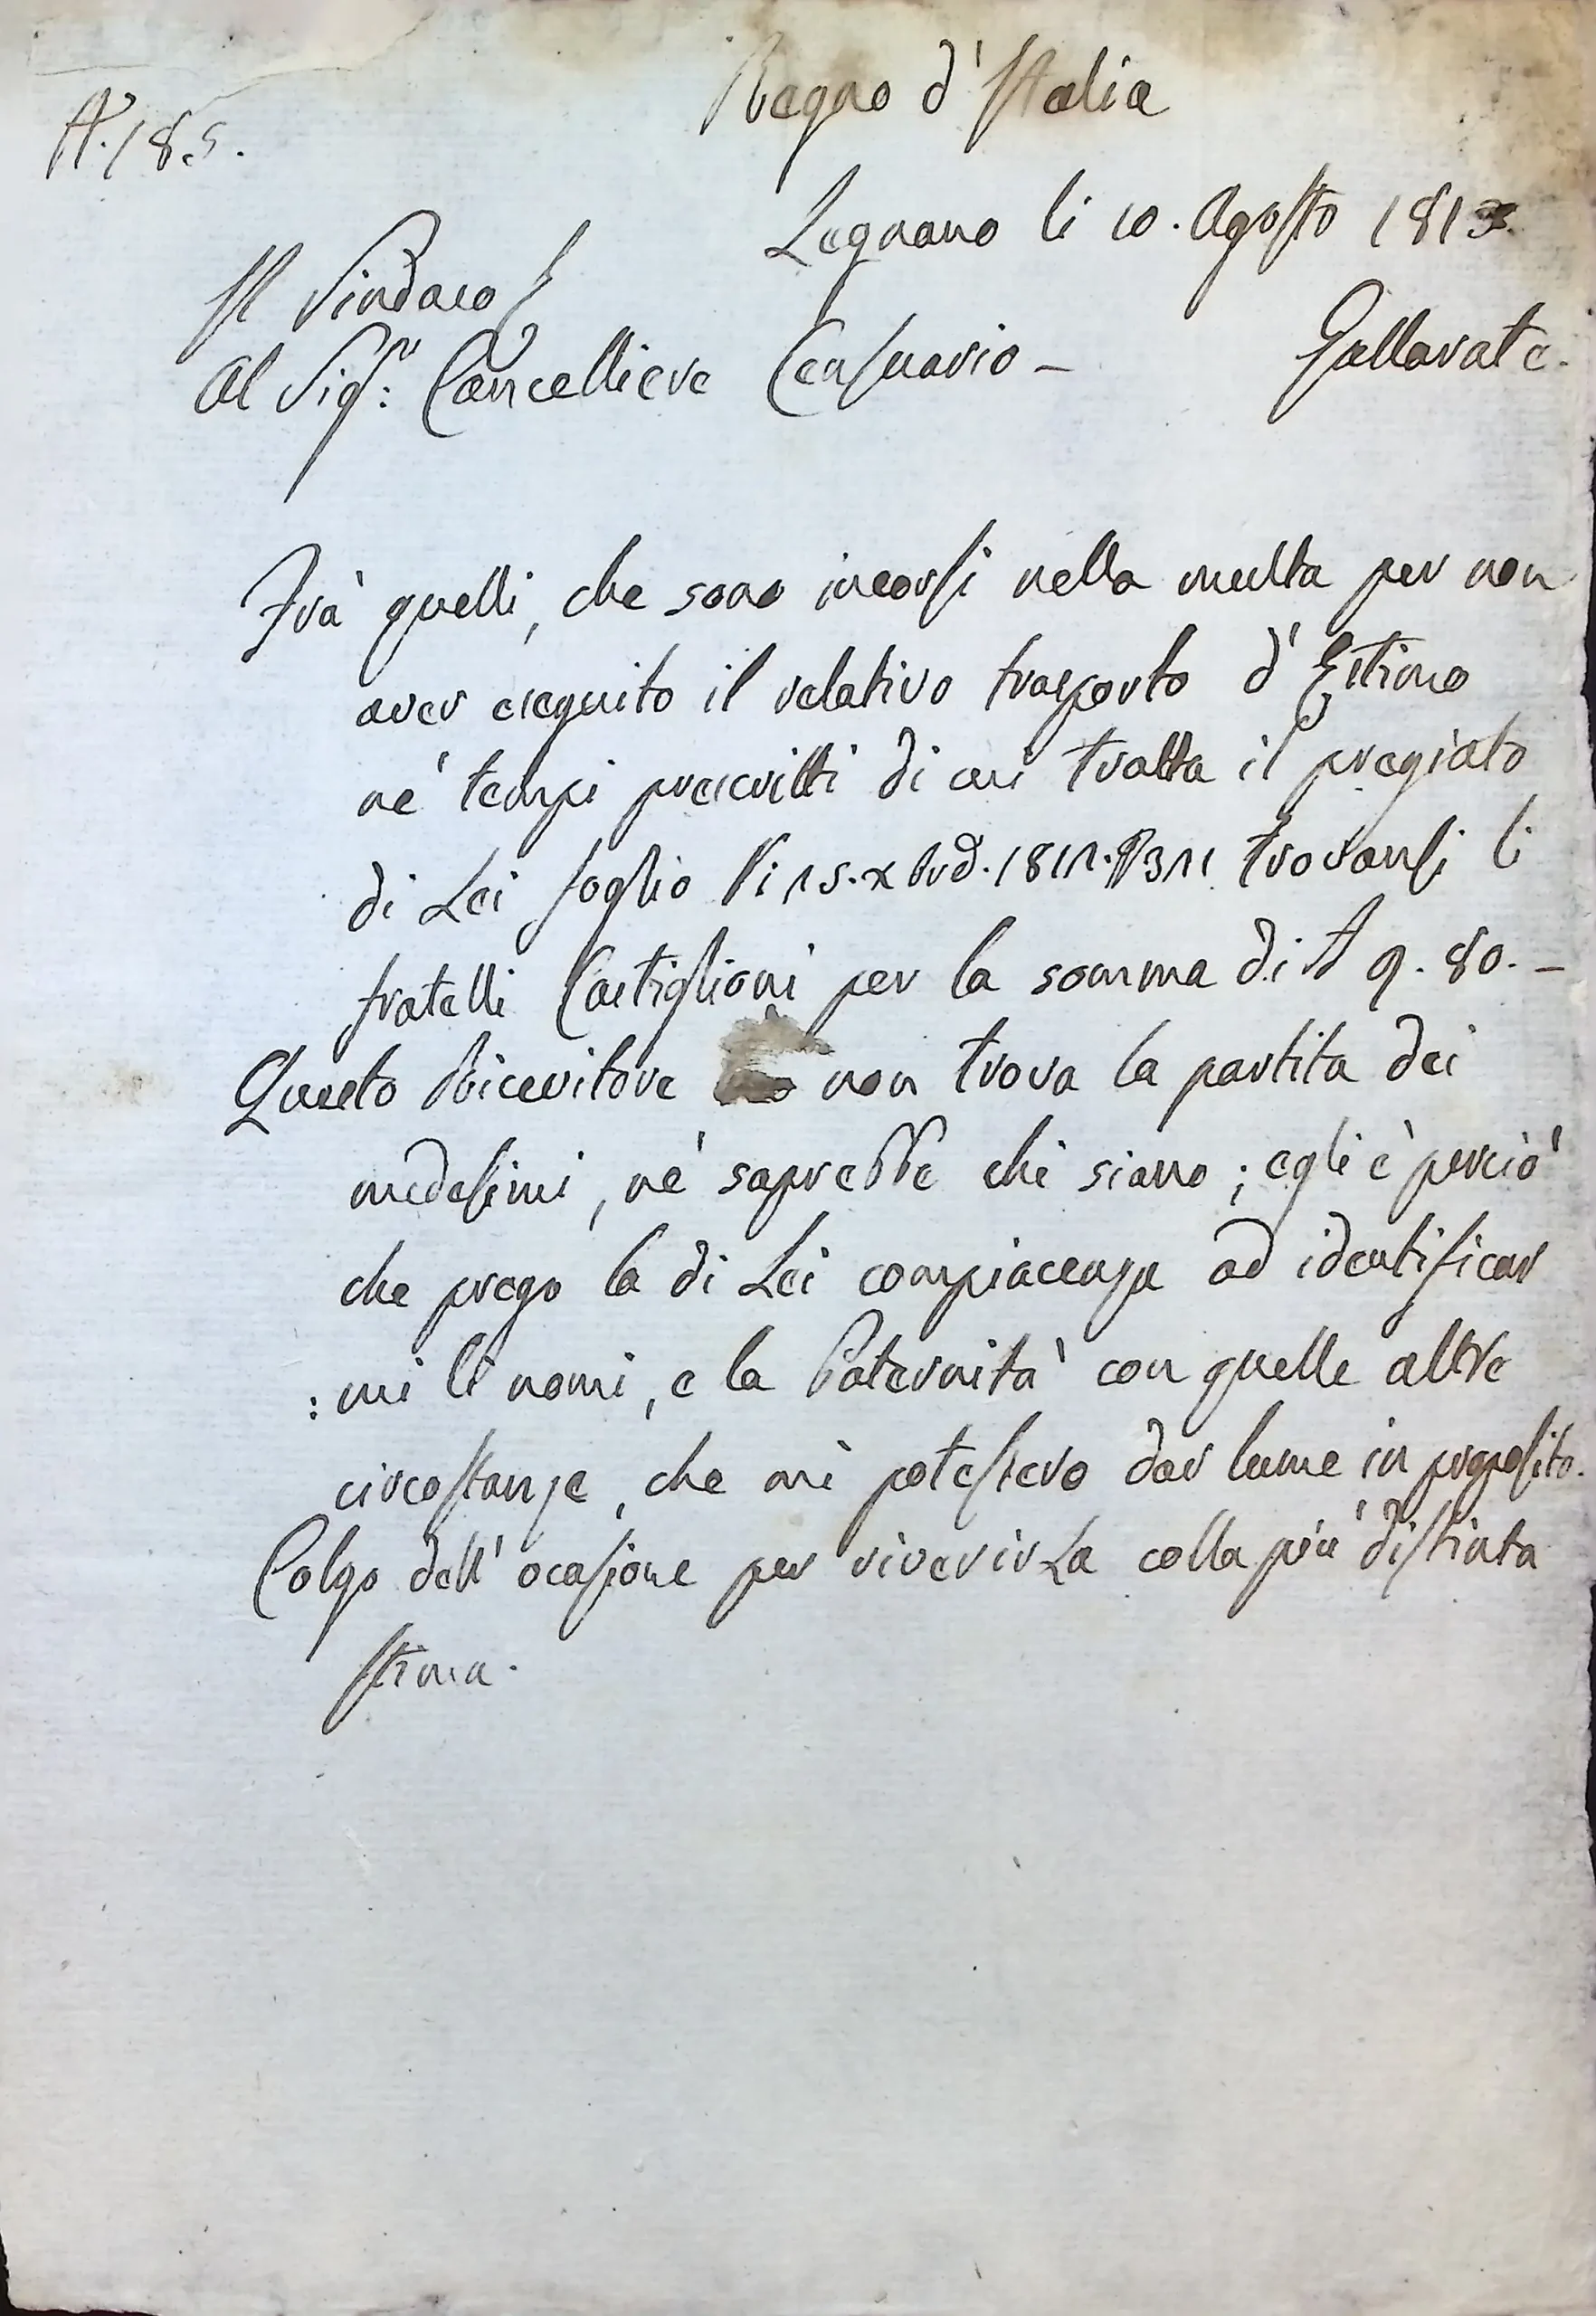 Regno d'Italia
N.° 185.
Legnano li 10. Agosto 1813.
Il Sindaco
Al Sig.r Cancelliere Censuario – Gallarate.
Frà quelli, che sono incorsi nella multa per non
aver eseguito il relativo trasporto d'Estimo
ne' tempi prescritti di cui tratta il pregiato
di Lei foglio 15. xbrd. 1812. trovansi li
fratelli Castiglioni per la somma di 9. 80. –
Questo Ricevitore non trova la partita dei
medesimi, nè saprebbe chi siano; egli è perciò
che prego la di Lei compiacenza ad identificar
:mi li nomi, e la Paternità con quelle altre
circostanze, che mi potessero dar lume in proposito.
Colgo dell'ocasione per riverirLa colla più distinta
stima.